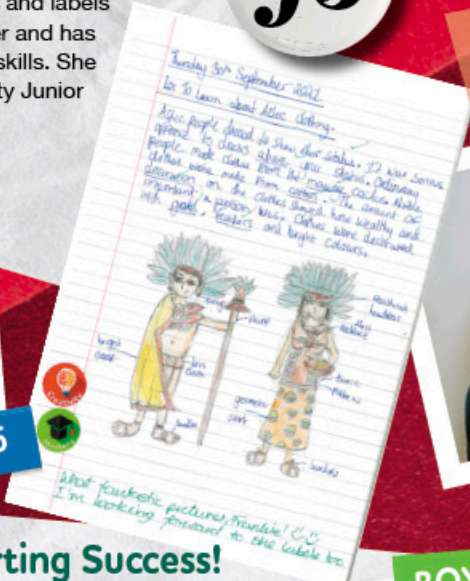 and labels
er and has
skills. She
ty Junior
Thursday 30th September 2021
Lo: To learn about Aztec clothing.
Aztec people dressed to show their status. It was serious
offence to dress above your station. Ordinary
people made clothes from the cactus. Noble
clothes were made from cotton. The amount of
decoration on the clothes showed how wealthy and
important a person was. Clothes were decorated
with gold, feathers and bright colours.
feathered
headdress
necklace
staff
bright
cape
loin
cloth
geometric
skirt
sandles
sandles
What fantastic pictures, Frankie!
I'm looking forward to the labels too.
rting Success!